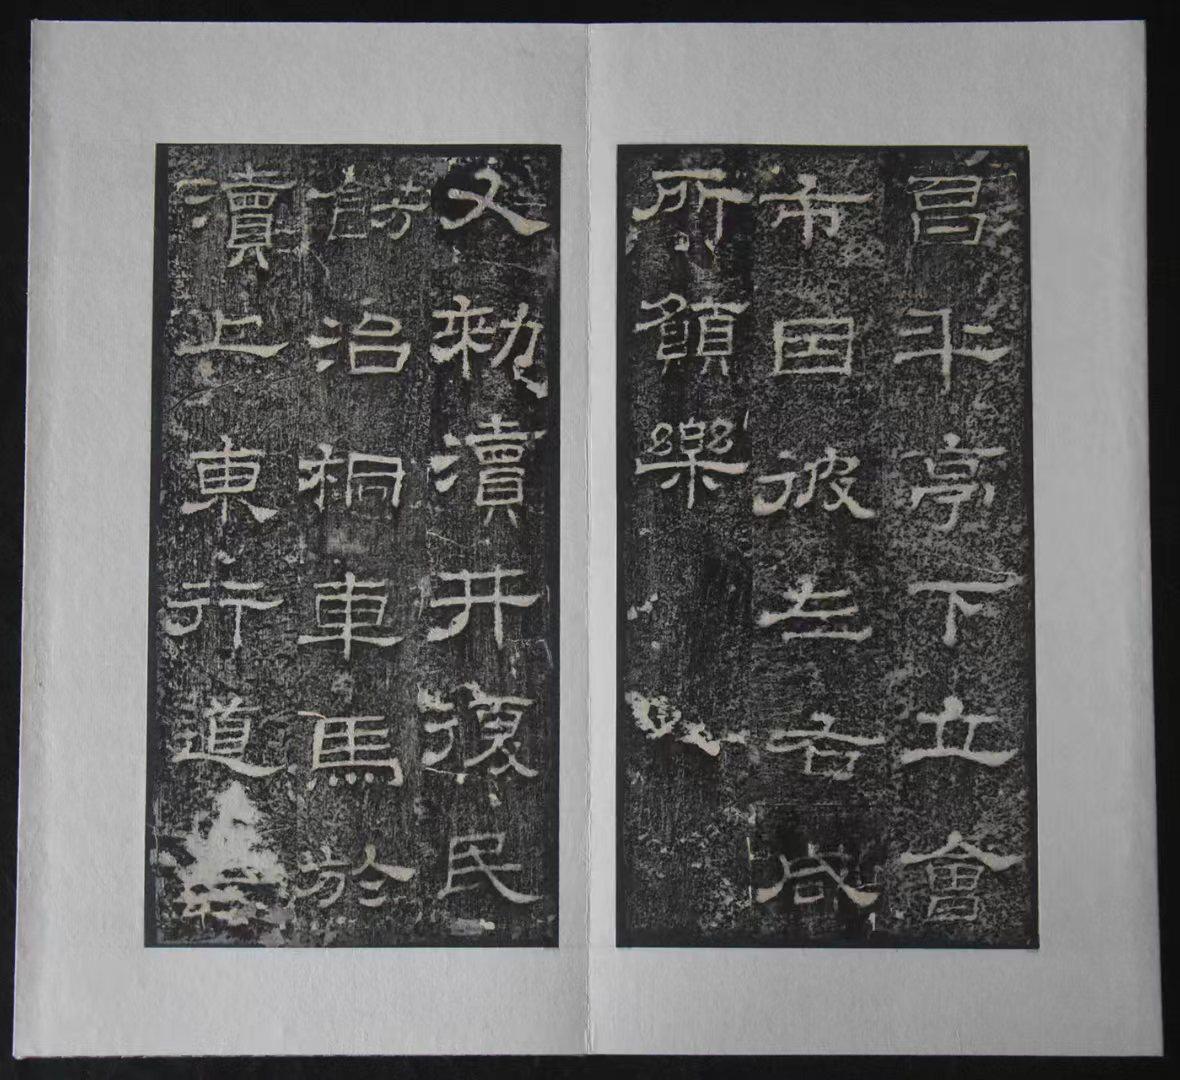 昌平亭下立會
市因彼左右咸
所願樂
又勑瀆井復民
餝治桐車馬於
瀆上東行道